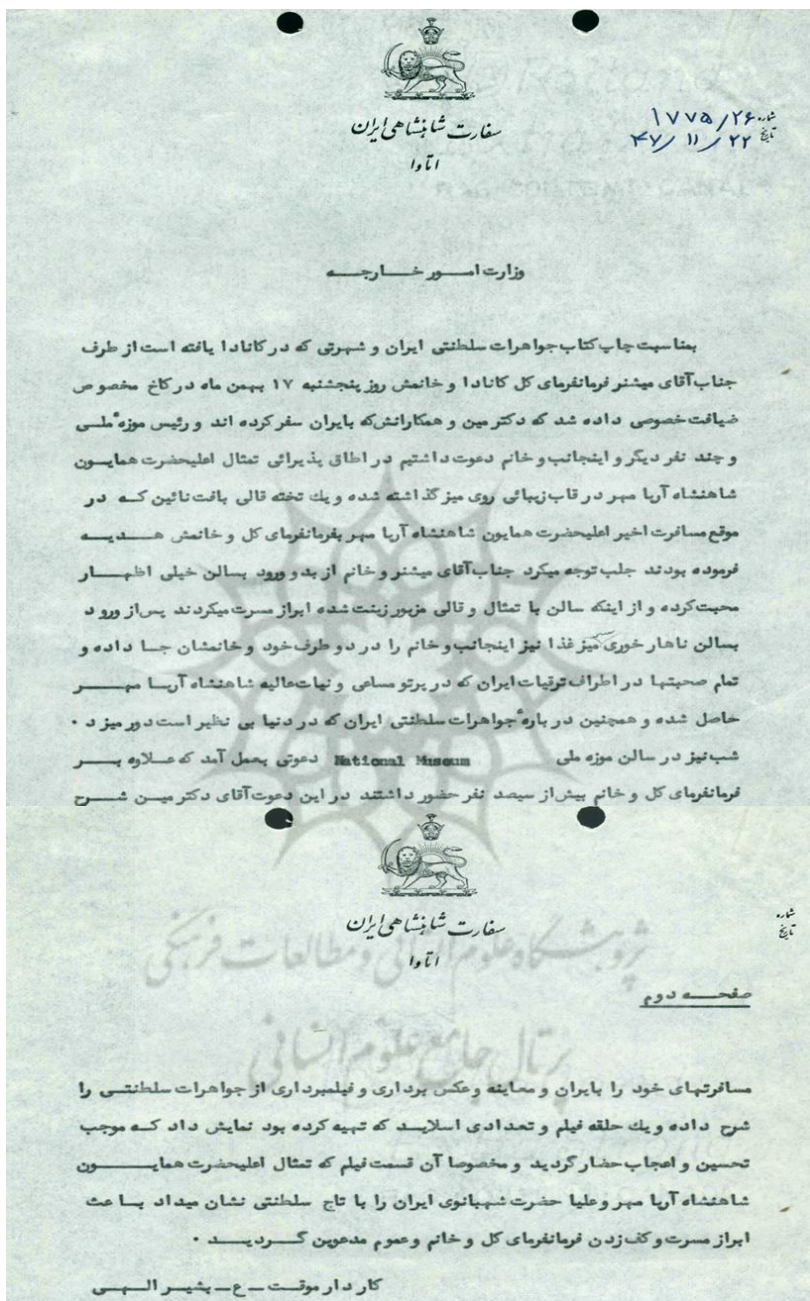 سفارت شاهنشاهی ایران
اتاوا
شماره ۱۷۷۵/۲۶
تاریخ ۴۷/۱۱/۲۲
وزارت امـور خـارجـه
بمناسبت چاپ کتاب جواهرات سلطنتی ایران و شهرتی که در کانادا یافته است از طرف
جناب آقای میشنر فرمانفرمای کل کانادا و خانمش روز پنجشنبه ۱۷ بهمن ماه در کاخ مخصوص
ضیافت خصوصی داده شد که دکتر مین و همکارانش که بایران سفر کرده اند و رئیس موزهٔ ملـی
و چند نفر دیگر و اینجانب و خانم دعوت داشتیم در اطاق پذیرائی تمثال اعلیحضرت همایـون
شاهنشاه آریا مهر در قاب زیبائی روی میز گذاشته شده و یك تخته قالی بافت نائین کـه در
موقع مسافرت اخیر اعلیحضرت همایون شاهنشاه آریا مهر بفرمانفرمای کل و خانمش هـدیـه
فرموده بودند جلب توجه میکرد جناب آقای میشنر و خانم از بدو ورود بسالن خیلی اظهـار
محبت کرده و از اینکه سالن با تمثال و قالی مزبور زینت شده ابراز مسرت میکردند پس از ورود
بسالن ناهار خوری میز غذا نیز اینجانب و خانم را در دو طرف خود و خانمشان جـا داده و
تمام صحبتها در اطراف ترقیات ایران که در پرتو مساعی و نیات عالیه شاهنشاه آریـا مهـر
حاصل شده و همچنین در بارهٔ جواهرات سلطنتی ایران که در دنیا بی نظیر است دور میزد ٠
شب نیز در سالن موزه ملی National Museum دعوتی بعمل آمد که عـلاوه بـر
فرمانفرمای کل و خانم بیش از سیصد نفر حضور داشتند در این دعوت آقای دکتر میـن شـرح
سفارت شاهنشاهی ایران
اتاوا
شماره
تاریخ
صفحـه دوم
مسافرتهای خود را بایران و معاینه و عکس برداری و فیلمبرداری از جواهرات سلطنتـی را
شرح داده و یك حلقه فیلم و تعدادی اسلایـد که تهیه کرده بود نمایش داد کـه موجب
تحسین و اعجاب حضار گردید و مخصوصا آن قسمت فیلم که تمثال اعلیحضرت همایـون
شاهنشاه آریا مهر و علیا حضرت شهبانوی ایران را با تاج سلطنتی نشان میداد بـاعث
ابراز مسرت و کف زدن فرمانفرمای کل و خانم و عموم مدعوین گـردیـد ٠
کاردار موقـت ـ ع ـ بشیـر الـهـی
پژوهشگاه علوم انسانی و مطالعات فرهنگی
پرتال جامع علوم انسانی